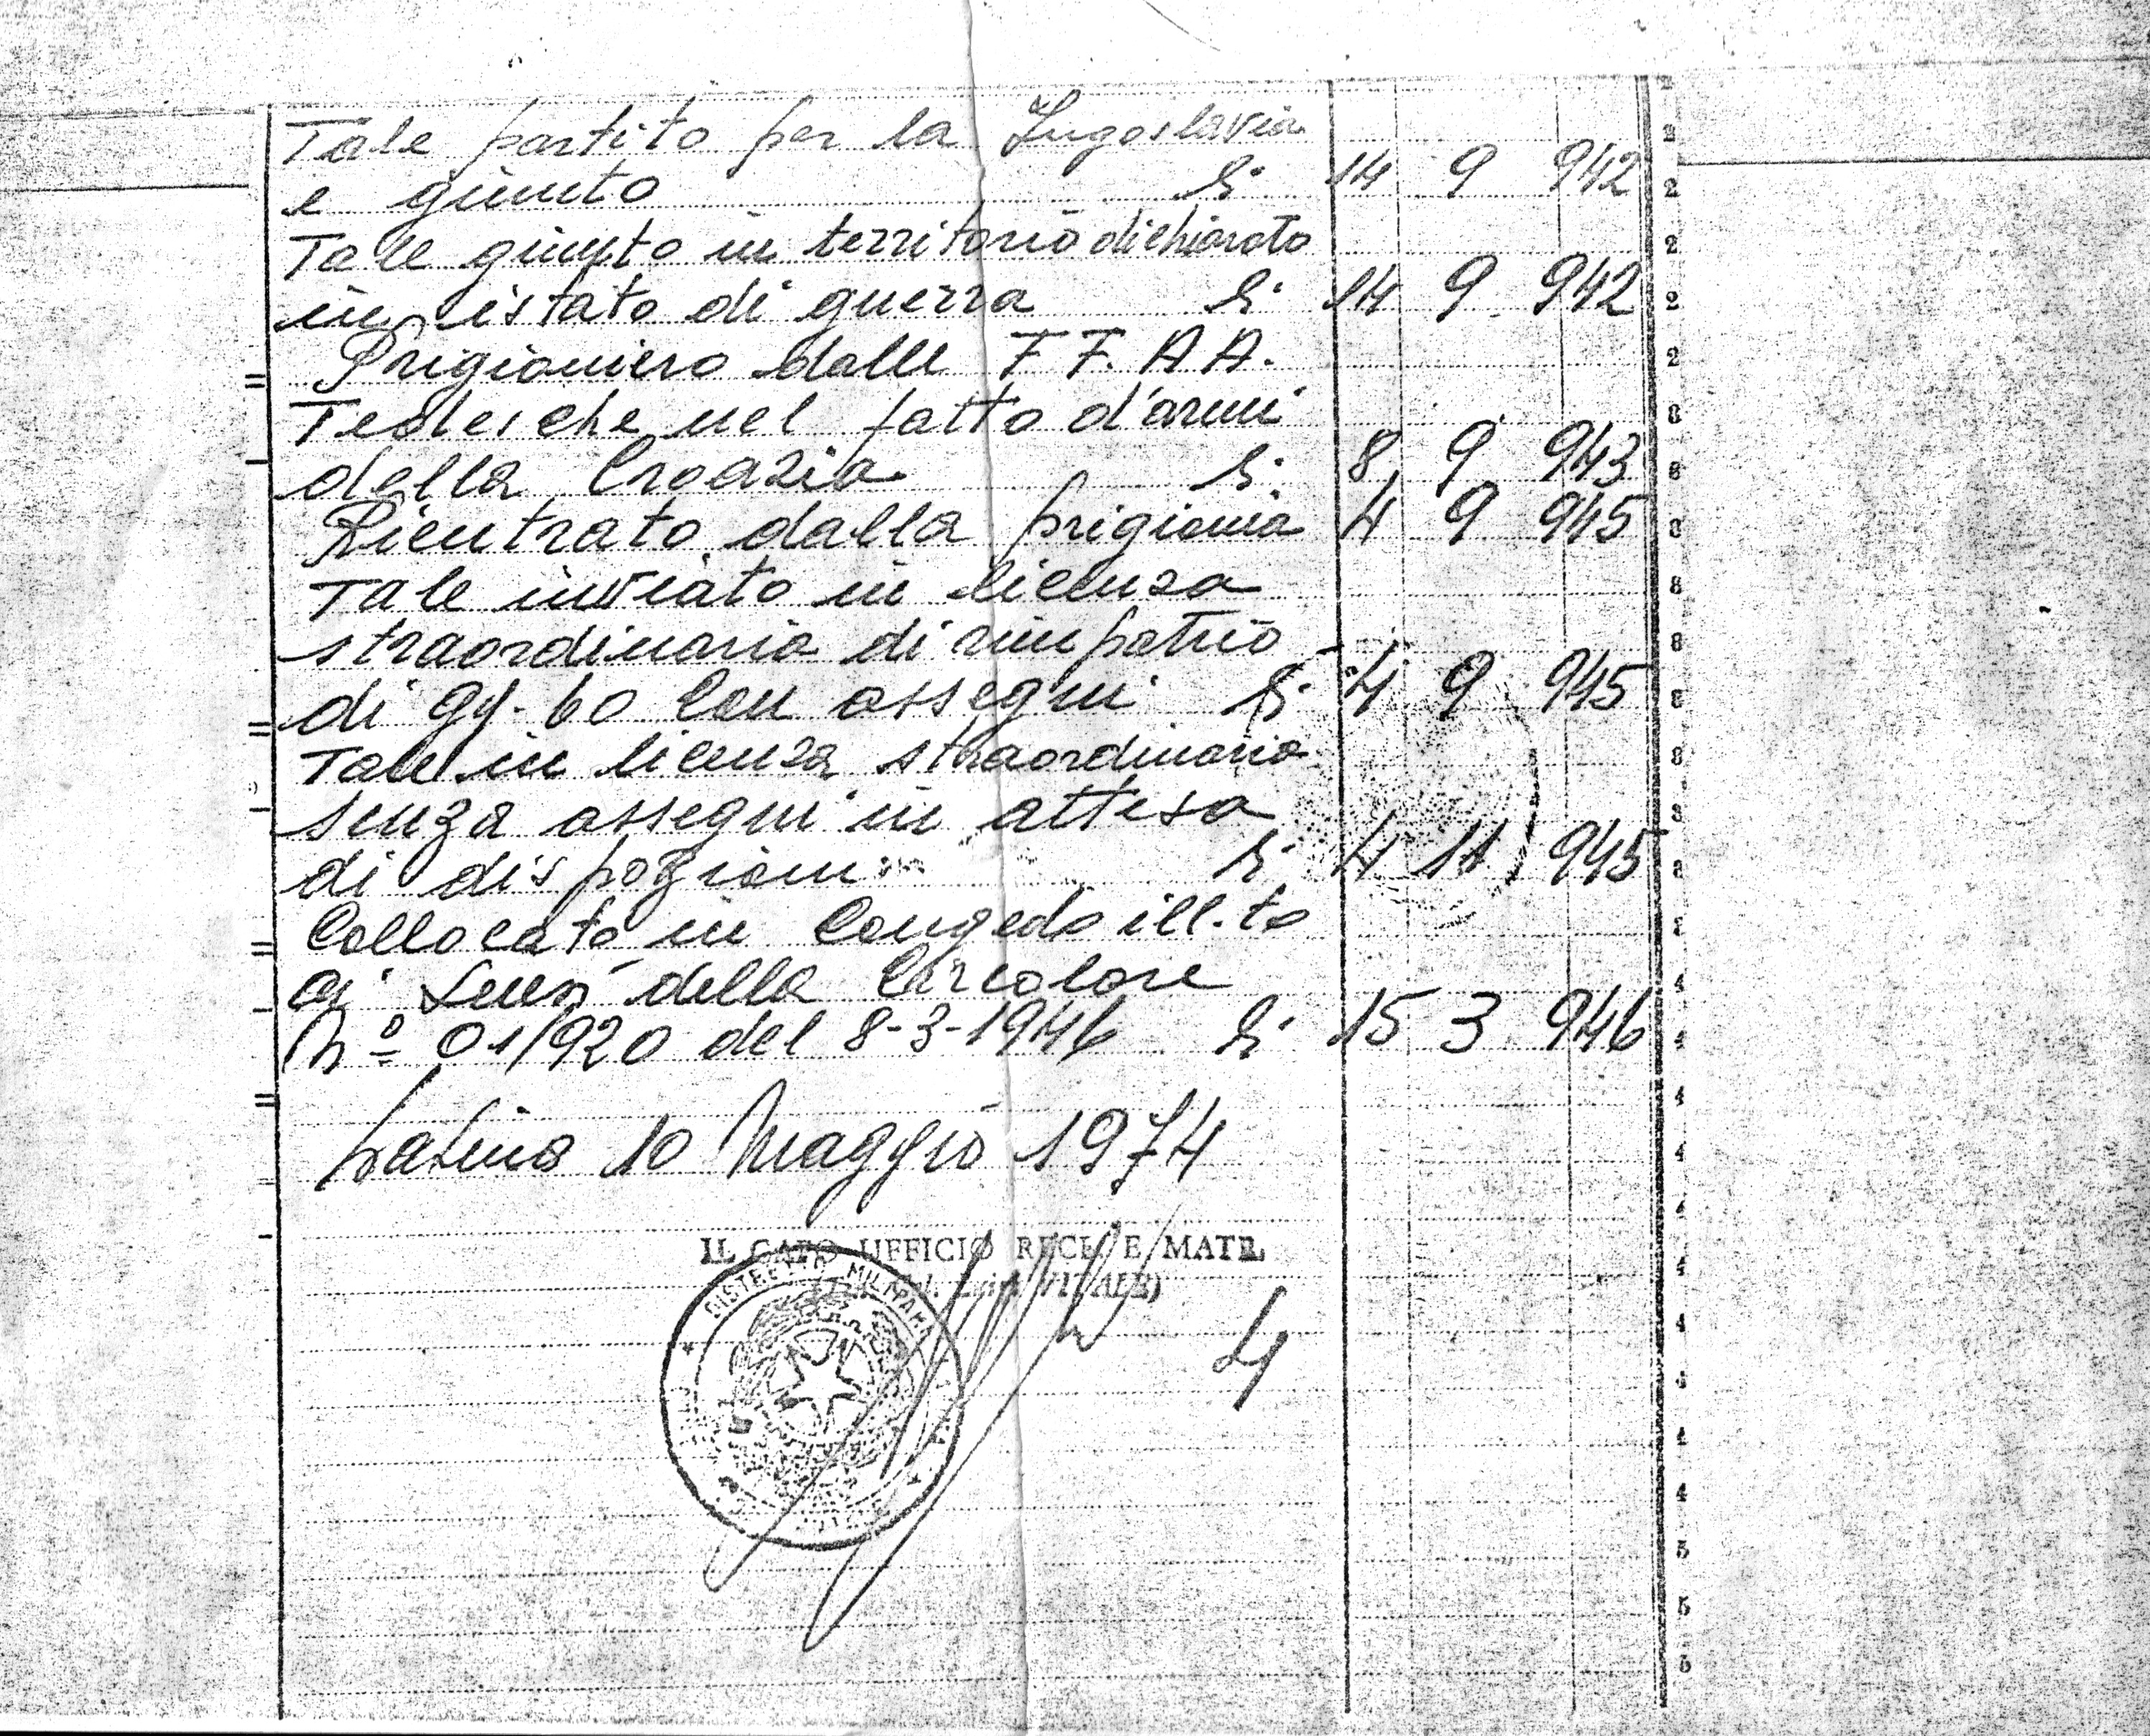 Tale partito per la Jugoslavia
e giunto li 14 9 942
Tale giunto in territorio dichiarato
in istato di guerra li 14 9 942
Prigioniero dalle FF. AA.
Tedesche nel fatto d'armi
della Croazia li 8 9 943
Rientrato dalla prigionia 4 9 945
Tale inviato in licenza
straordinaria di rimpatrio
di gg. 60 con assegni li 4 9 945
Tale in licenza straordinaria
senza assegni in attesa
di disposizioni li 4 11 945
Collocato in Congedo ill.to
ai sensi della Circolare
Nº 01/920 del 8-3-1946 li 15 3 946
Latina 10 Maggio 1974
IL CAPO UFFICIO RECL. E MATR.
VITALE)
DISTRETTO MILITARE
4